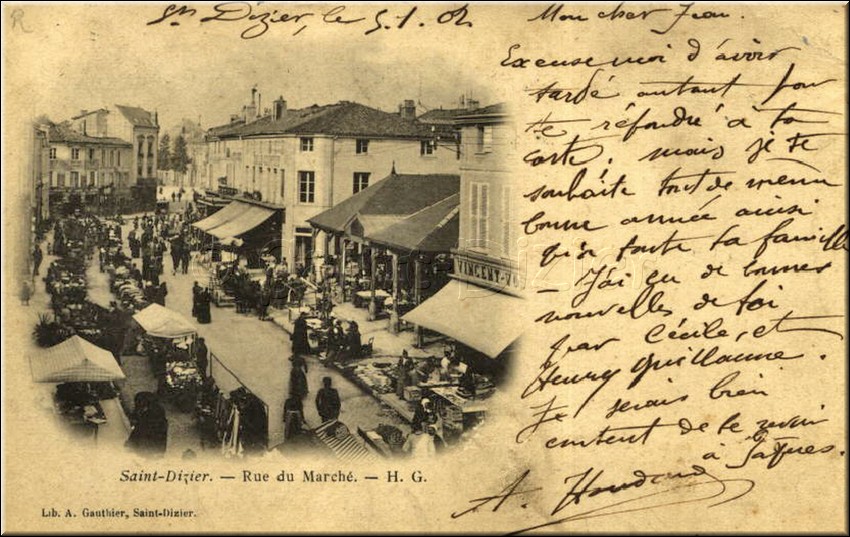 St Dizier, le 5.1.02
Mon cher Jean.
Excuse moi d'avoir
tardé autant pour
te répondre à ta
carte. mais je te
souhaite tout de même
bonne année ainsi
qu'a toute ta famille
– J'ai eu de bonnes
nouvelles de toi
par Cécile, et
Henry Guillaume.
Je serais bien
content de te revoir
à Pâques.
A.
VINCENT-V
Saint-Dizier. — Rue du Marché. — H. G.
Lib. A. Gauthier, Saint-Dizier.